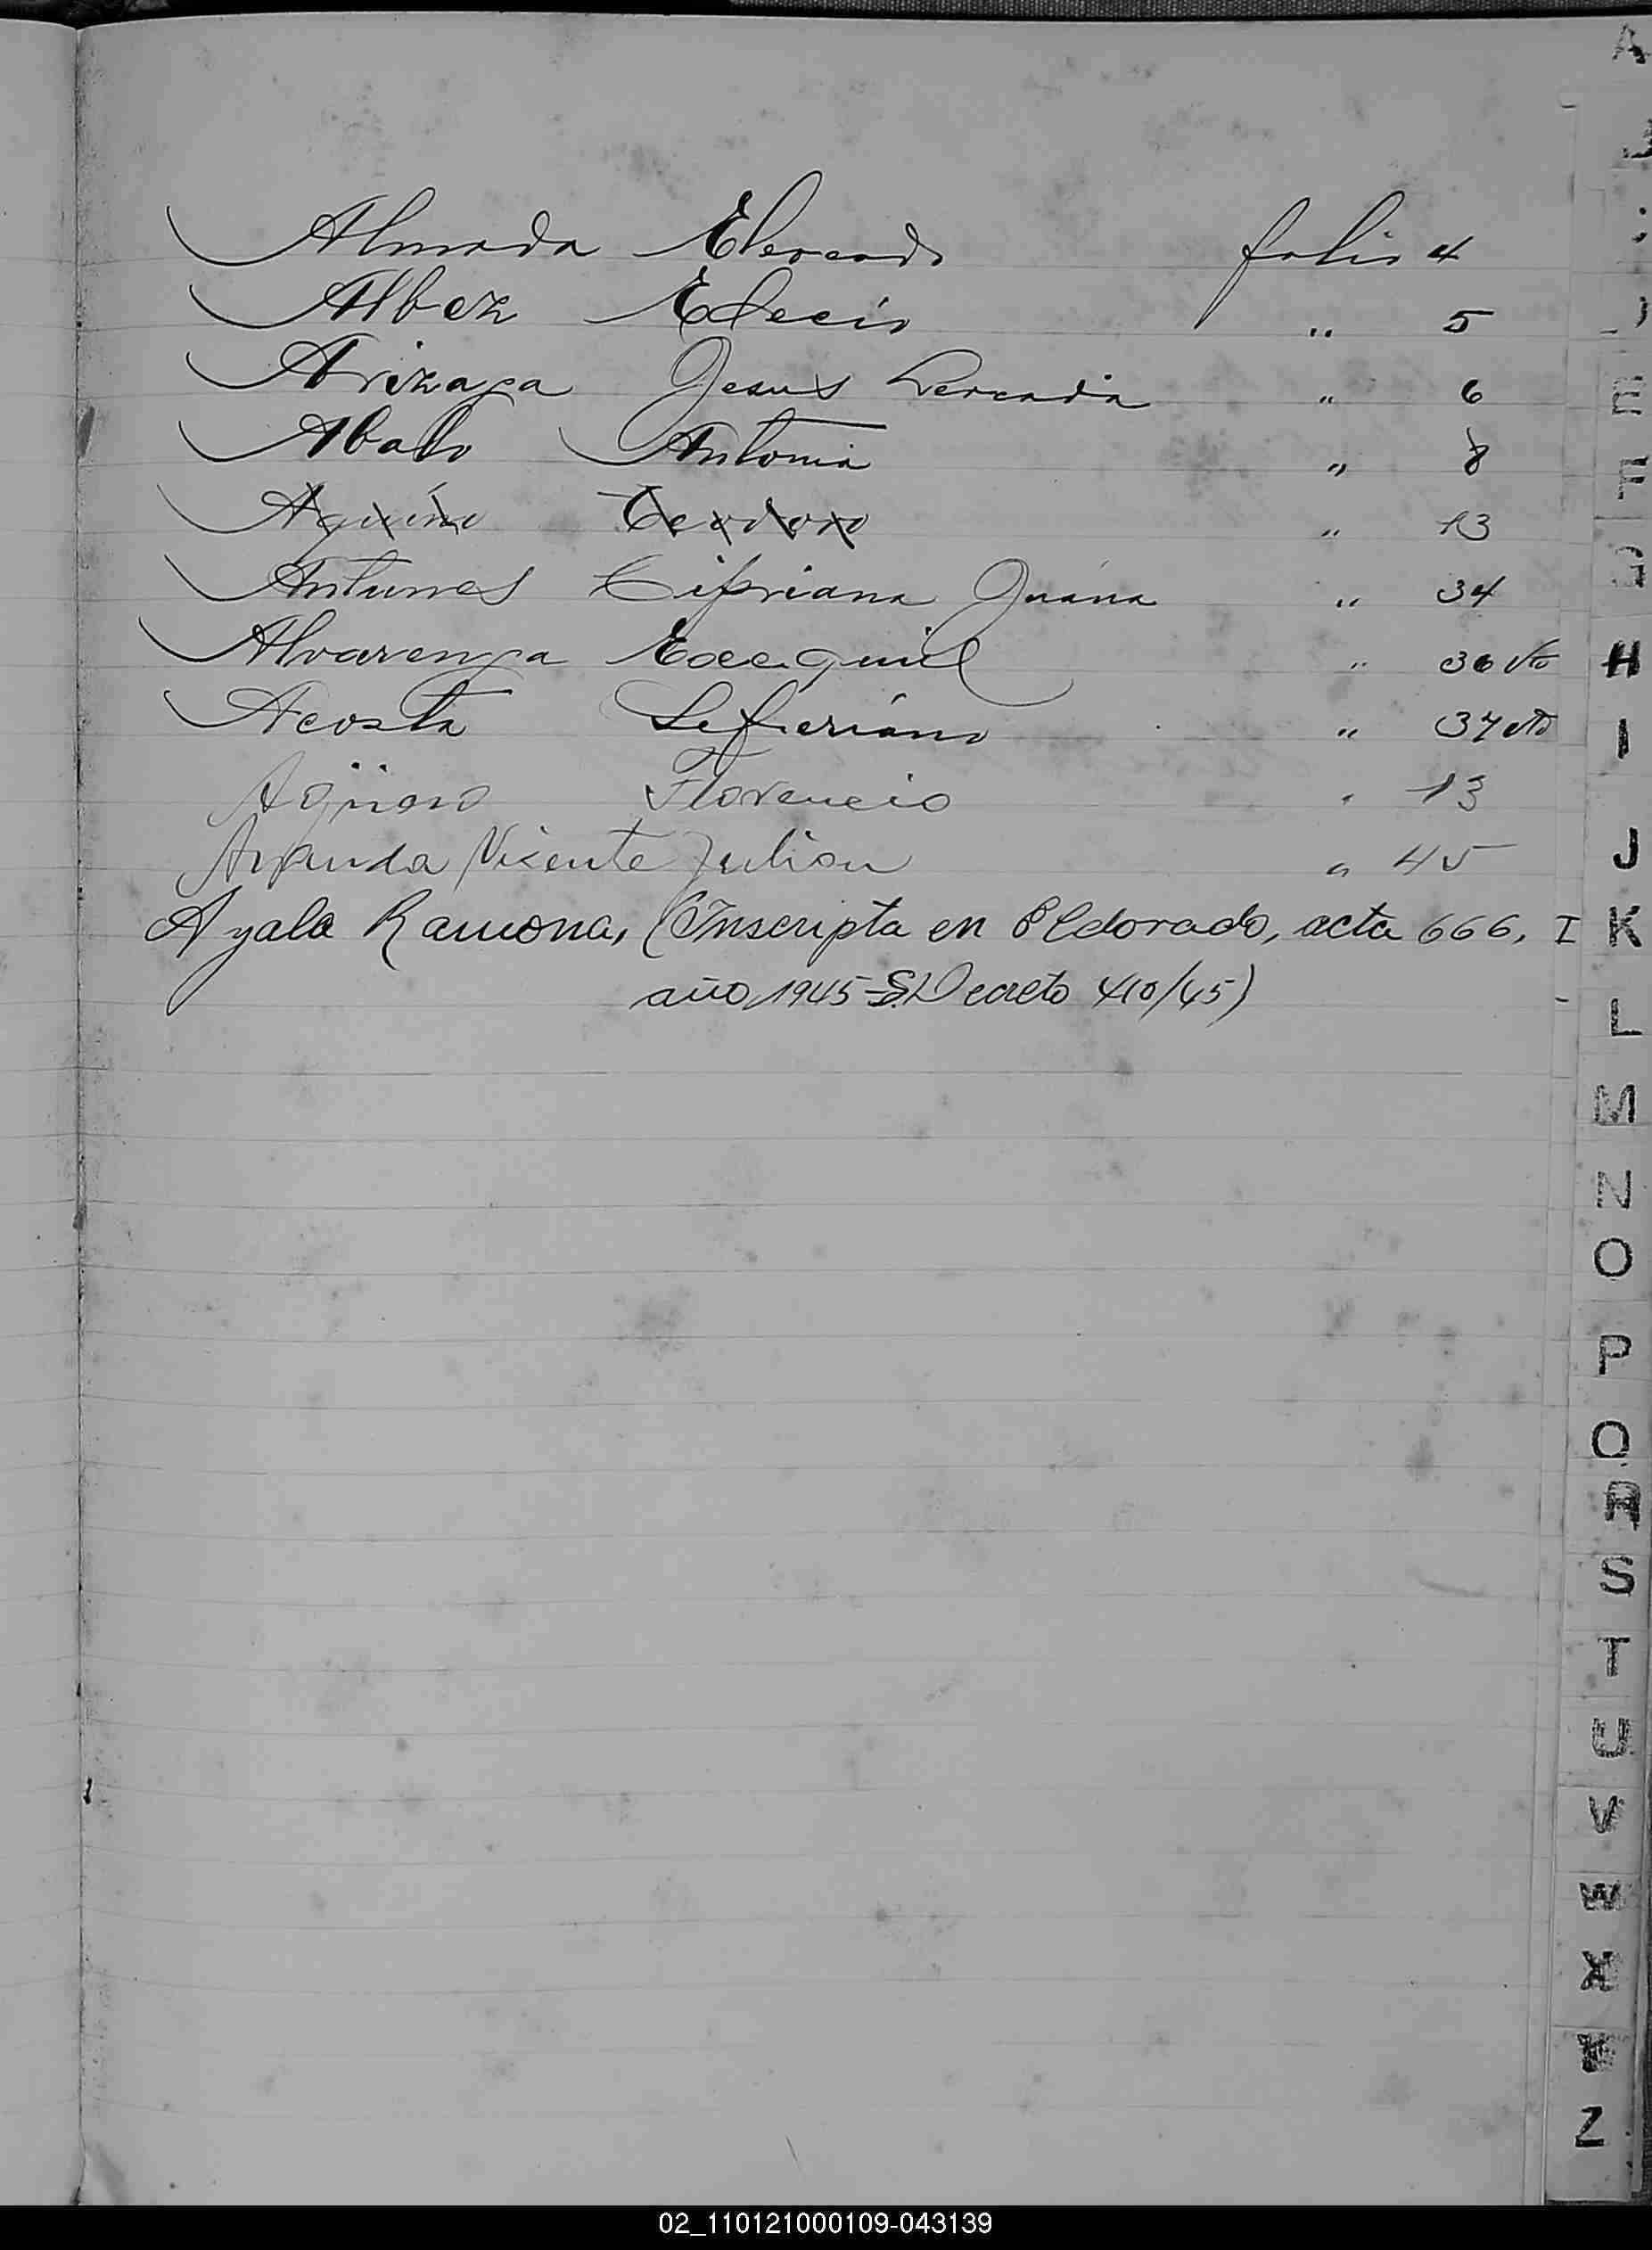 Almada folio 4
Albez Elecio " 5
Arizaga Jesus Leocadia " 6
Abalo Antonia " 8
Aquino Teodoro " 13
Antunes Cipriana Juana " 34
Alvarenga Exequiel " 36 vto
Acosta Seferiano " 37 vto
Agüero Florencio " 13
Aranda Vicente Julian " 45
Ayala Ramona, (Inscripta en Eldorado, acta 666, I
año 1945-S/Decreto 410/45)
A
E
F
G
H
I
J
K
L
M
N
O
P
Q
R
S
T
U
V
W
X
Z
02_110121000109-043139